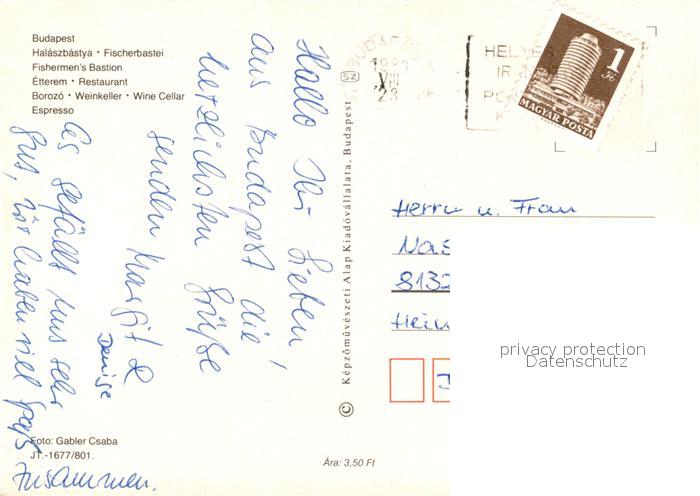 Budapest
Halászbástya • Fischerbastei
Fishermen's Bastion
Étterem • Restaurant
Borozó • Weinkeller • Wine Cellar
Espresso
Hallo Ihr Lieben,
aus Budapest die
herzlichsten Grüße
senden Margit &
Denise
Es gefällt uns sehr
gut, wir haben viel Spaß
zusammen.
Foto: Gabler Csaba
JT.-1677/801.
Ára: 3,50 Ft
© Képzőművészeti Alap Kiadóvállalata, Budapest
SZ
BUDAPEST
VIII
23
HELYES
1 Ft
MAGYAR POSTA
Herrn u. Frau
Nas
8132
Hein
privacy protection
Datenschutz